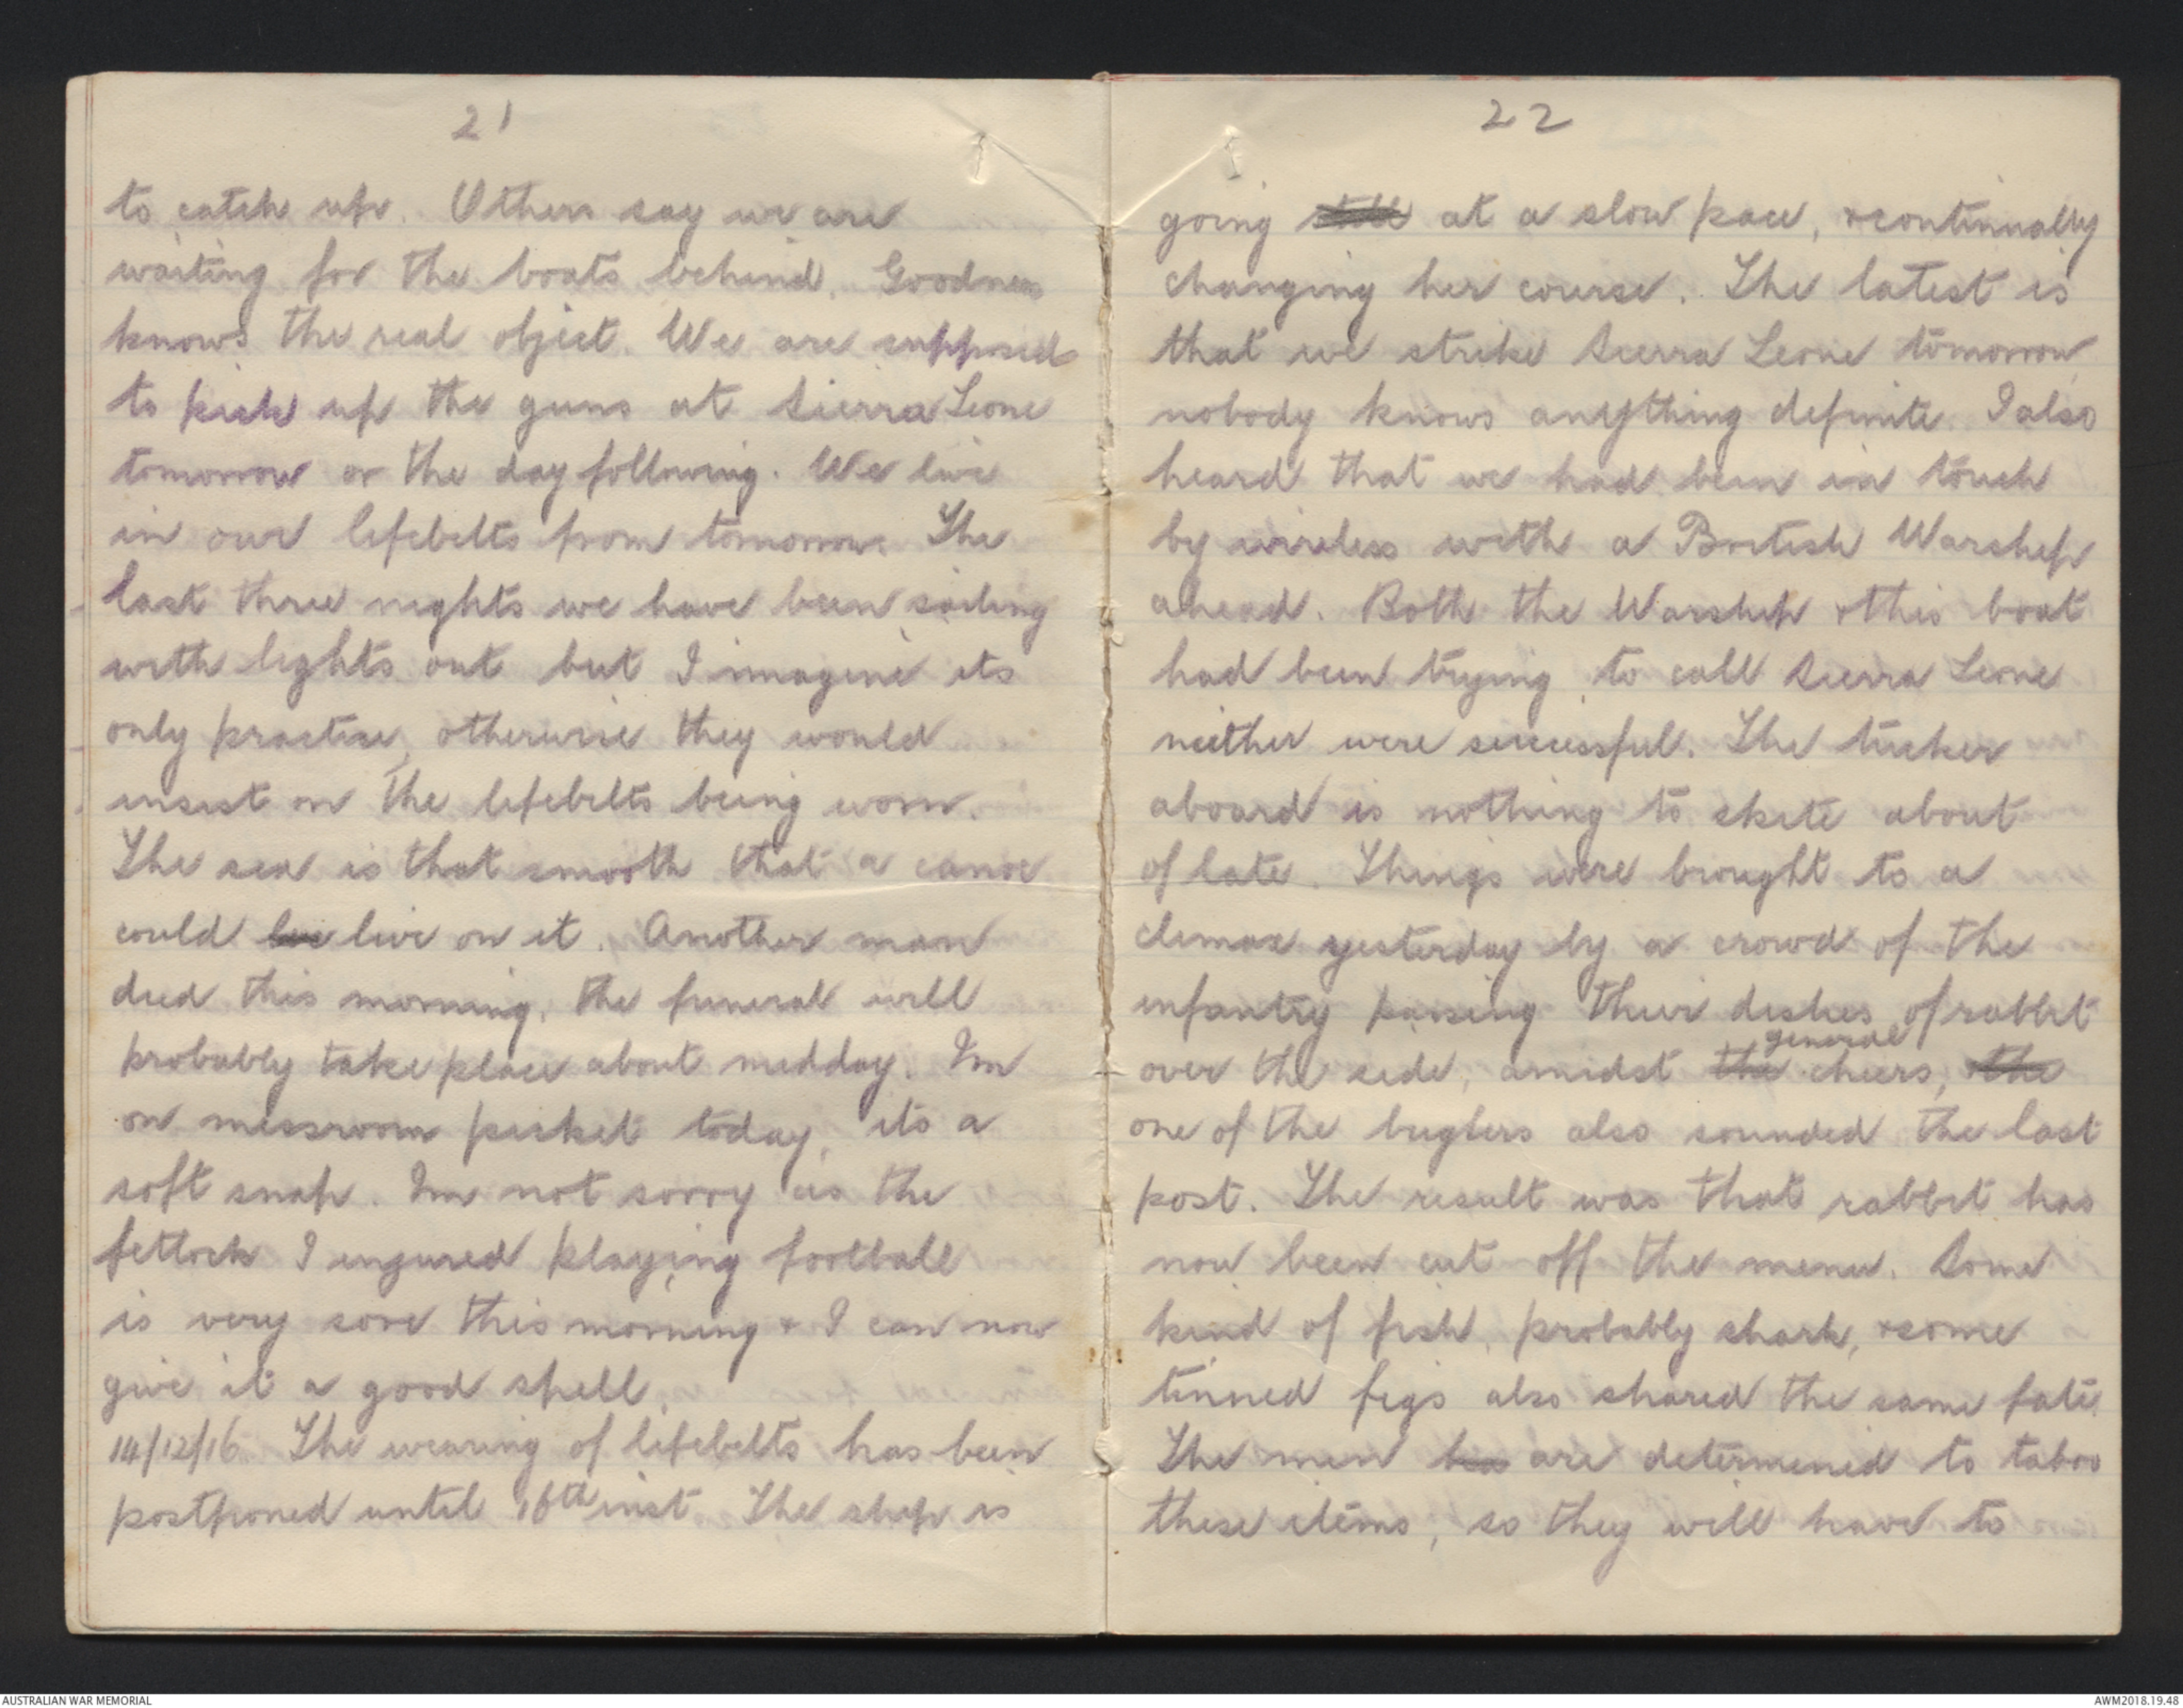 21
to catch up. Others say we are
waiting for the boats behind. Goodness
knows the real object. We are supposed
to pick up the guns at Sierra Leone
tomorrow or the day following. We live
in our lifebelts from tomorrow. The
last three nights we have been sailing
with lights out but I imagine its
only practise, otherwise they would
insist on the lifebelts being worn.
The sea is that smooth that a canoe
could live live on it. Another man
died this morning, the funeral will
probably take place about midday. Im
on messroom picket today, its a
soft snap. Im not sorry as the
fetlock I injured playing football
is very sore this morning & I can now
give it a good spell.
14/12/16 The wearing of lifebelts has been
postponed until 16th inst. The ship is
22
going still at a slow pace, & continually
changing her course. The latest is
that we strike Sierra Leone tomorrow,
nobody knows anything definite. I also
heard that we had been in touch
by wireless with a British Warship
ahead. Both the Warship & this boat
had been trying to call Sierra Leone
neither were successful. The tucker
aboard is nothing to skite about
of late. Things were brought to a
climax yesterday by a crowd of the
infantry passing their dishes of rabbit
general
over the side, amidst the cheers, the
one of the buglers also sounded the last
post. The result was that rabbit has
now been cut off the menu. Some
kind of fish, probably shark, & some
tinned figs also shared the same fate.
The men has are determined to taboo
these items, so they will have to
AUSTRALIAN WAR MEMORIAL
AWM2018.19.48